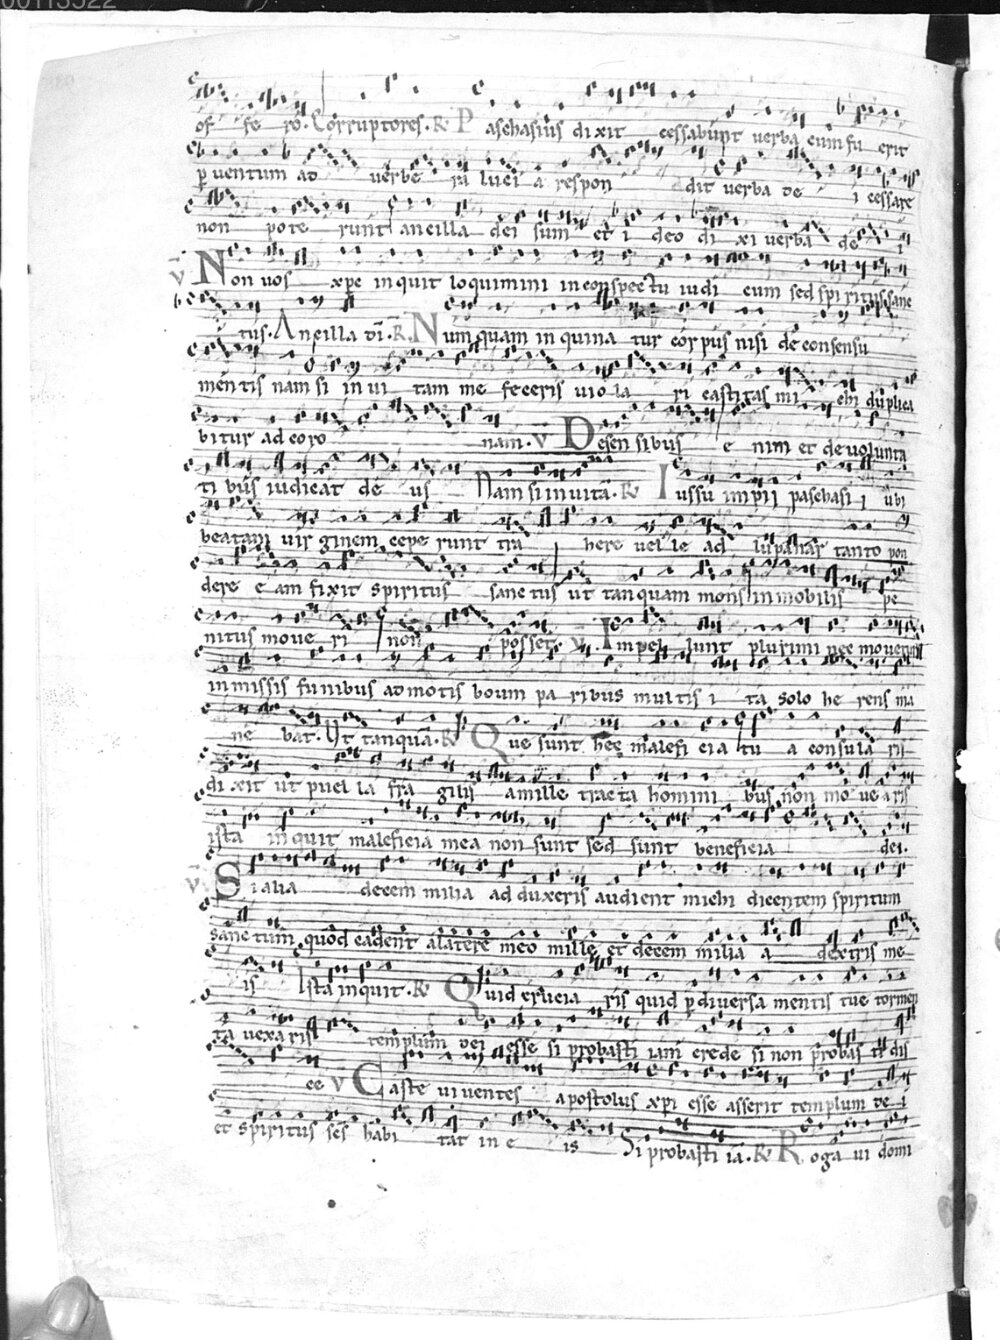 00113522
of fe ro. Corruptores. R P aschasius dixit cessabunt verba cum fu erit
p ventum ad verbe ra luci a respon dit verba de i cessare
non pote runt ancilla dei sum et i deo di xi verba de i
V Non vos xpe inquit loquimini in conspectu iudi cum sed spiritus sanc
tus. Ancilla di. R. Numquam in quina tur corpus nisi de consensu
mentis nam si in vi tam me feceris viola ri castitas mi chi duplica
bitur ad coro nam. V De sensibus e nim et de volunta
ti bus iudicat de us Nam si invita. R Iussu impii paschasi i ubi
beatam vir ginem cepe runt tra here vel le ad lupanar tanto pon
dere e am fixit spiritus sanc tus ut tanquam mons inmobilis pe
nitus move ri non posset. V. Impel lunt plurimi nec movetur
inmissis funibus admotis boum pa ribus multis i ta solo he rens ma
ne bat. Ut tanqua. R Que sunt hec malefi cia tu a consula ris
di xit ut puel la fra gilis a mille tracta homini bus non mo vearis
ista inquit maleficia mea non sunt sed sunt beneficia dei.
V. Si alia decem milia adduxeris audient michi dicentem spiritum
sanctum quod cadent a latere meo mille et decem milia a dextris me
is Ista inquit. R Quid er ucia ris quid p diversa mentis tue tormen
ta vexaris templum dei esse si probasti iam crede si non probas et dis
ce V Caste viventes apostolus xpi esse asserit templum de i
et spiritus scs habi tat in e is Si probasti ia. R Roga vi domi